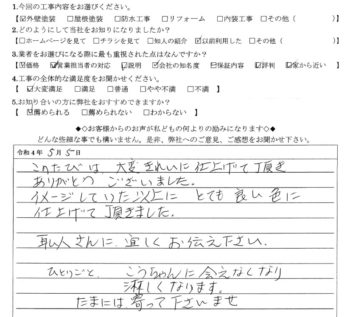 1.今回の工事内容をお選びください。
☑外壁塗装 □屋根塗装 □防水工事 □リフォーム □内装工事 □その他( )
2.どのようにして当社をお知りになりましたか？
□ホームページを見て □チラシを見て □知人の紹介 ☑以前利用した □その他( )
3.業者をお選びになる際に最も重視された点はなんですか？
☑価格 ☑営業担当者の対応 ☑説明 ☑会社の知名度 □保証内容 ☑評判 ☑家から近い
4.工事の全体的な満足度をお聞かせください。
☑大変満足 □満足 □普通 □やや不満 □不満
5.お知り合いの方に弊社をおすすめできますか？
☑薦められる □薦められない □わからない
◆◇お客様からのお声が私どもの何よりの励みになります◆◇
どんな些細な事でも構いません、是非、弊社へのご意見、ご感想をお聞かせ下さい。
令和4年 5月5日
このたびは 大変きれいに仕上げて頂き
ありがとうございました。
イメージしていた以上に とても良い色に
仕上げて頂きました。
職人さんに 宜しくお伝え下さい。
ひとりごと、 こうちゃんに会えなくなり
淋しくなります。
たまには寄って下さいませ